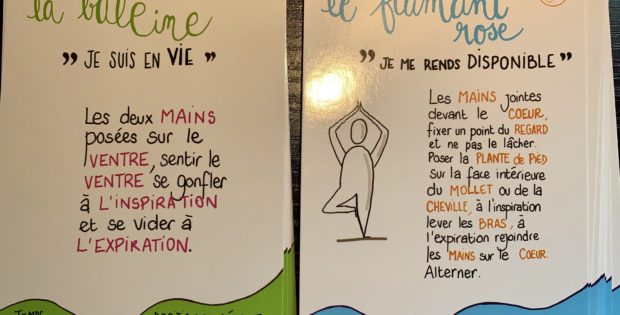 la baleine
” JE SUIS EN VIE ”
Les deux MAINS
posées sur le
VENTRE, sentir le
VENTRE se gonfler
à L'INSPIRATION
et se vider à
L'EXPIRATION.
le flamant
rose
” JE ME RENDS DISPONIBLE ”
Les MAINS jointes
devant le COEUR,
fixer un point du REGARD
et ne pas le lâcher.
Poser la PLANTE de PIED
sur la face intérieure
du MOLLET ou de la
CHEVILLE, à l'inspiration
lever les BRAS, à
l'expiration rejoindre
les MAINS sur le COEUR.
Alterner.